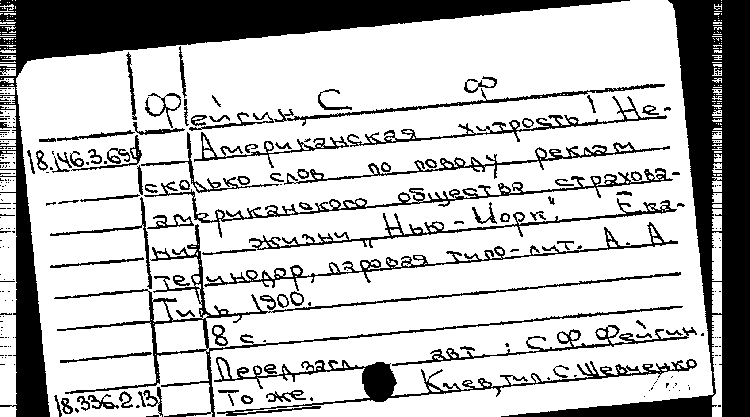 Фейгин, С Ф
18.146.3.690 Американская хитрость! Не-
сколько слов по поводу реклам
американского общества страхова-
ния жизни „Нью-Йорк". Ека-
теринодар, паровая типо-лит. А. А.
Тиль, 1900.
8 с.
Перед загл. авт.: С.Ф. Фейгин.
18.336.2.13 То же. Киев, тип. С. Шевченко